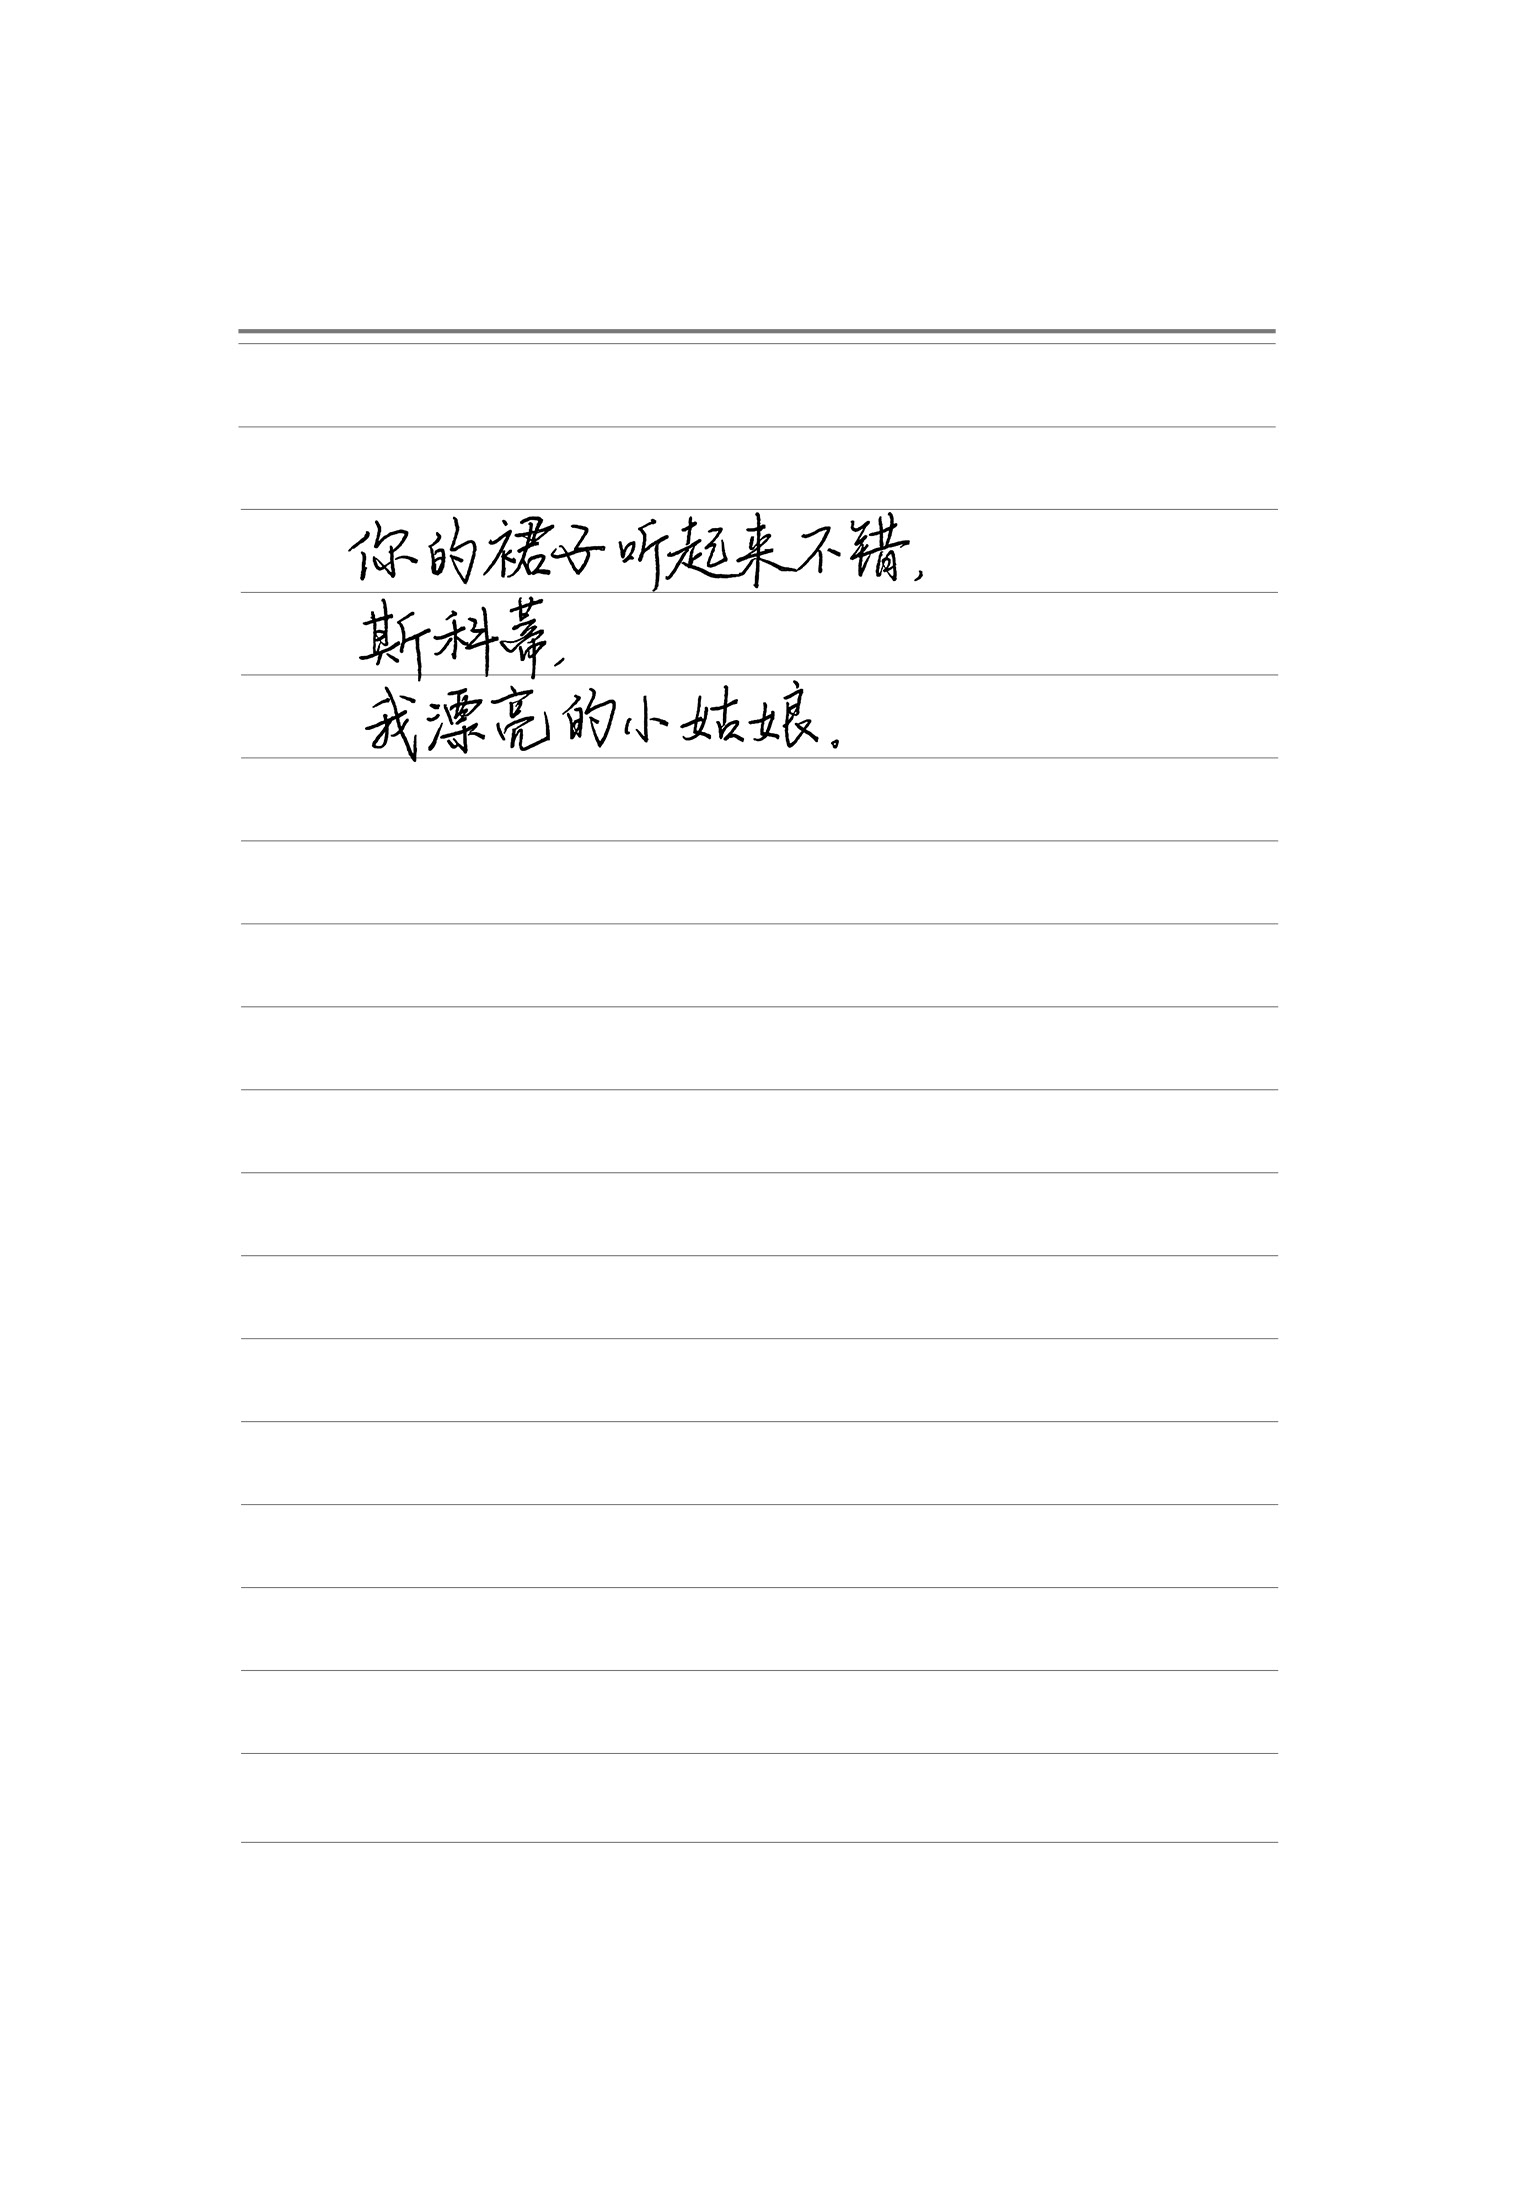 你的裙子听起来不错,
斯科蒂,
我漂亮的小姑娘。